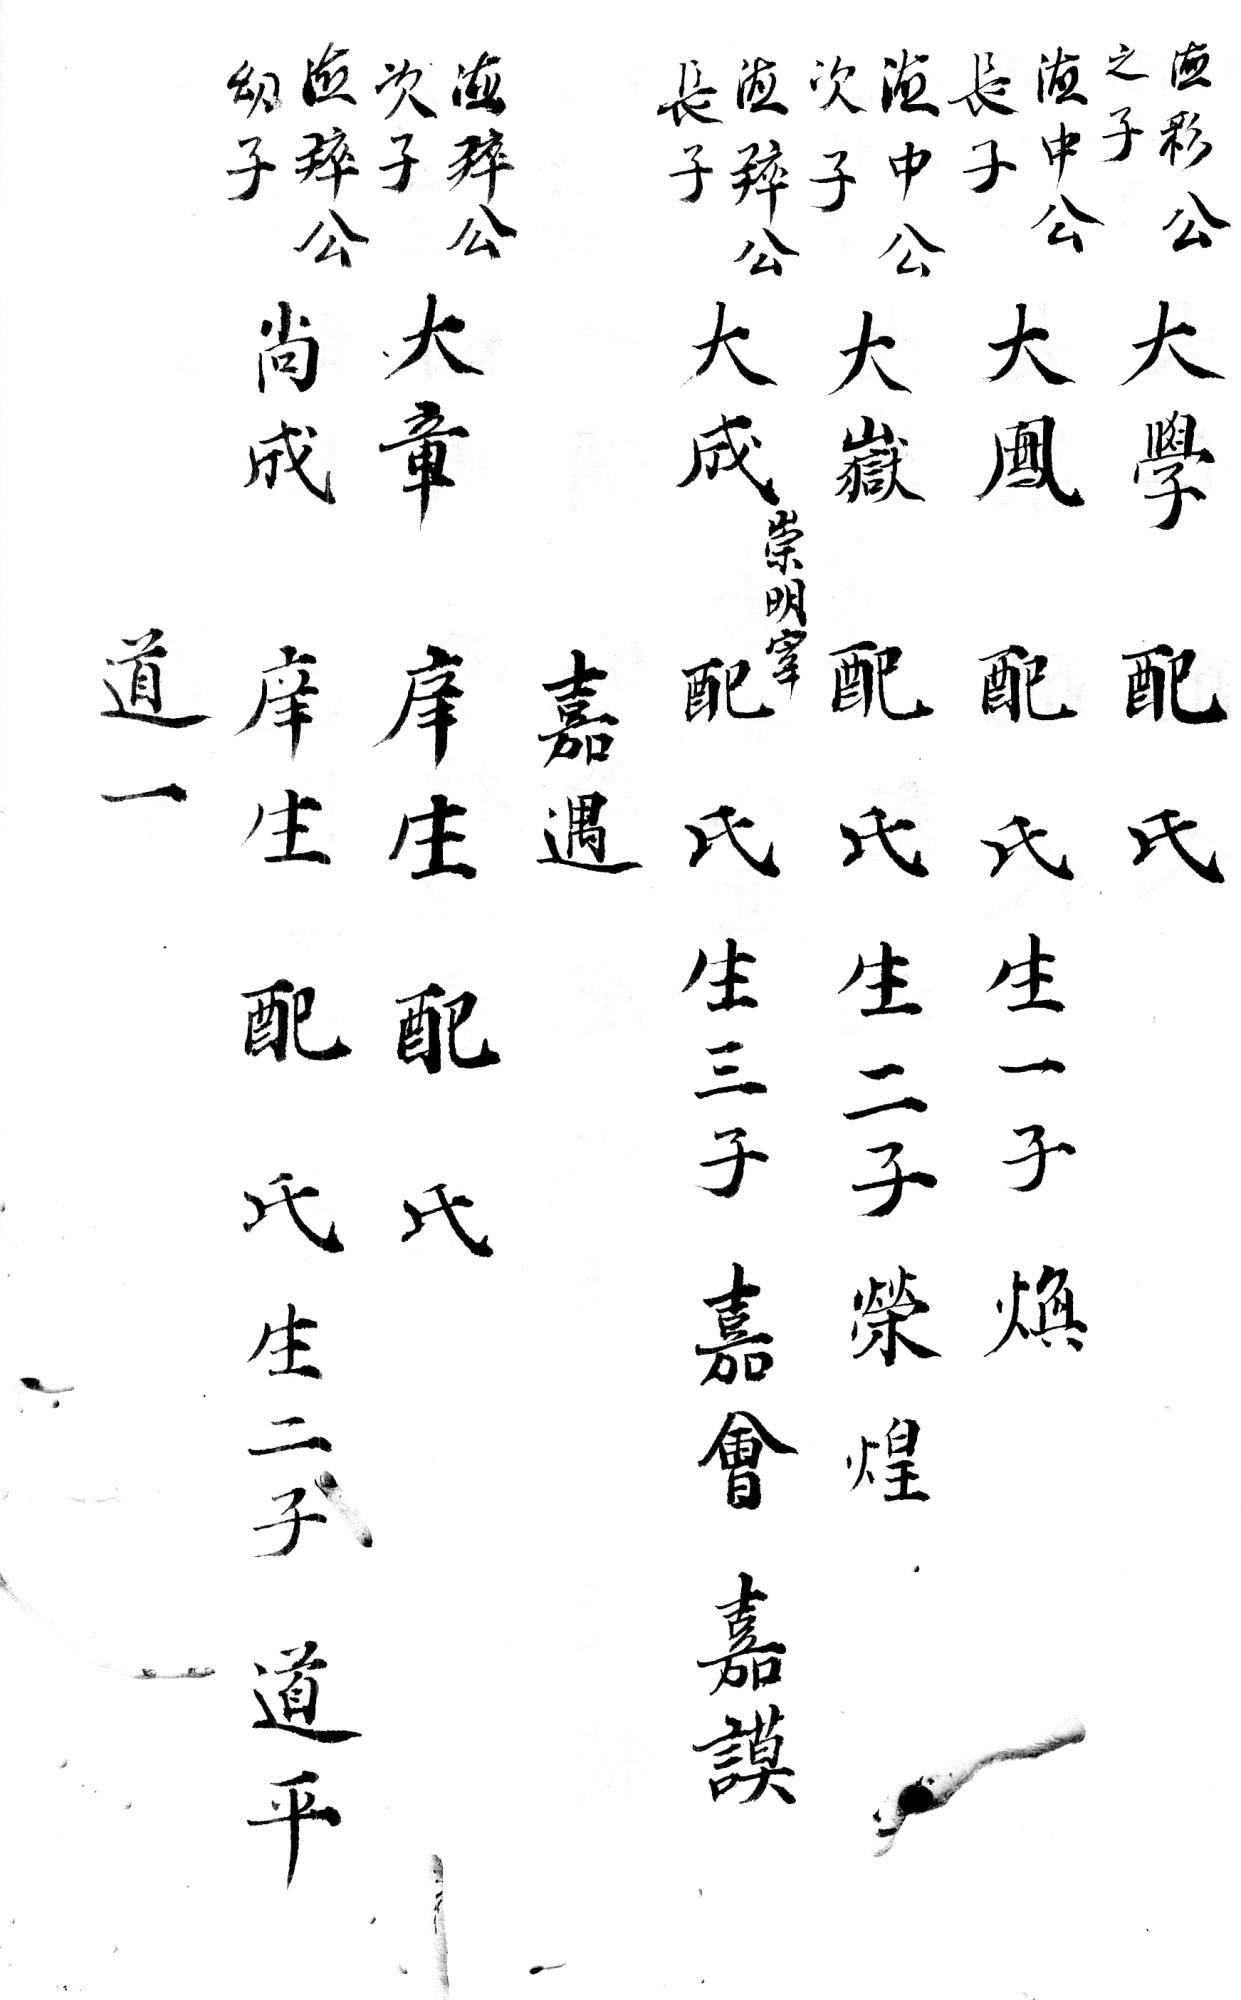 德彩公
之子
大學 配 氏
德中公
長子
大鳳 配 氏 生一子 煥
德中公
次子
大嶽 配 氏 生二子 榮 煌
德粹公
長子
大成 崇明宰 配 氏 生三子 嘉會 嘉謨
嘉遇
德粹公
次子
大章 庠生 配 氏
德粹公
幼子
尚成 庠生 配 氏 生二子 道平
道一